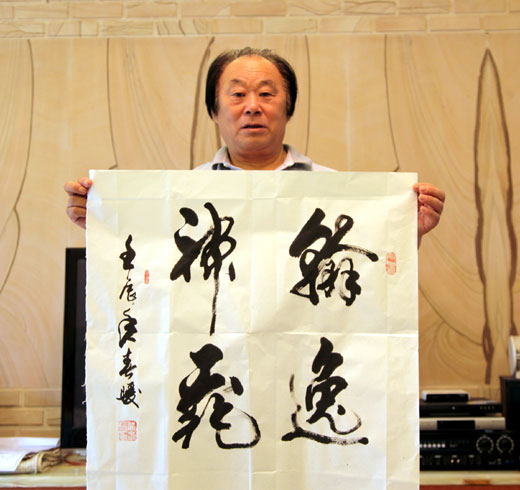 翰逸
神飛
壬辰 春暖